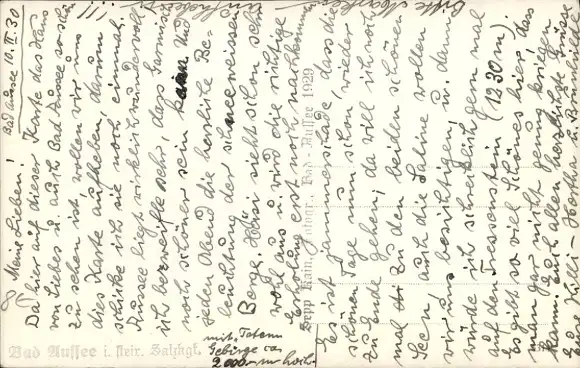 Bad Aussee 10. II. 30
8) Meine Lieben!
Da hier auf dieser Karte das Haus
von Liebes u. auch Bad Aussee so schön
zu sehen ist wollen wir uns
dies Karte aufheben, darum
schicke ich sie noch einmal.
Aussee liegt wirklich wundervoll
ich bezweifle sehr dass Garmisch
noch schöner sein kann. Und
jeden Abend die herrliche Be-
leuchtung der schneeweissen
Berge. Hansi sieht schon sehr
wohl aus u. wird die richtige
Erholung erst noch nachkommen
Es ist jammerschade, dass die
schönen Tage nun schon wieder
zu Ende gehen, da will ich noch
mal zu den beiden schönen
Seen, auch die Saline wollen
wir uns besichtigen, u. dann
würde ich schrecklich gern mal
auf den Tressenstein (1230 m)
Es gibt so viel Schönes hier, dass
man gar nicht genug kriegen
kann. Euch allen herzlichste Grüsse
Willi - Hertha u. Brunhilde
Bitte Marken
aufheben!!!
mit Toten
Gebirge ca
2000 m hoch.
Sepp Rain, Photogr., Bad-Aussee 1929
Bad Aussee i. steir. Salzkgt.